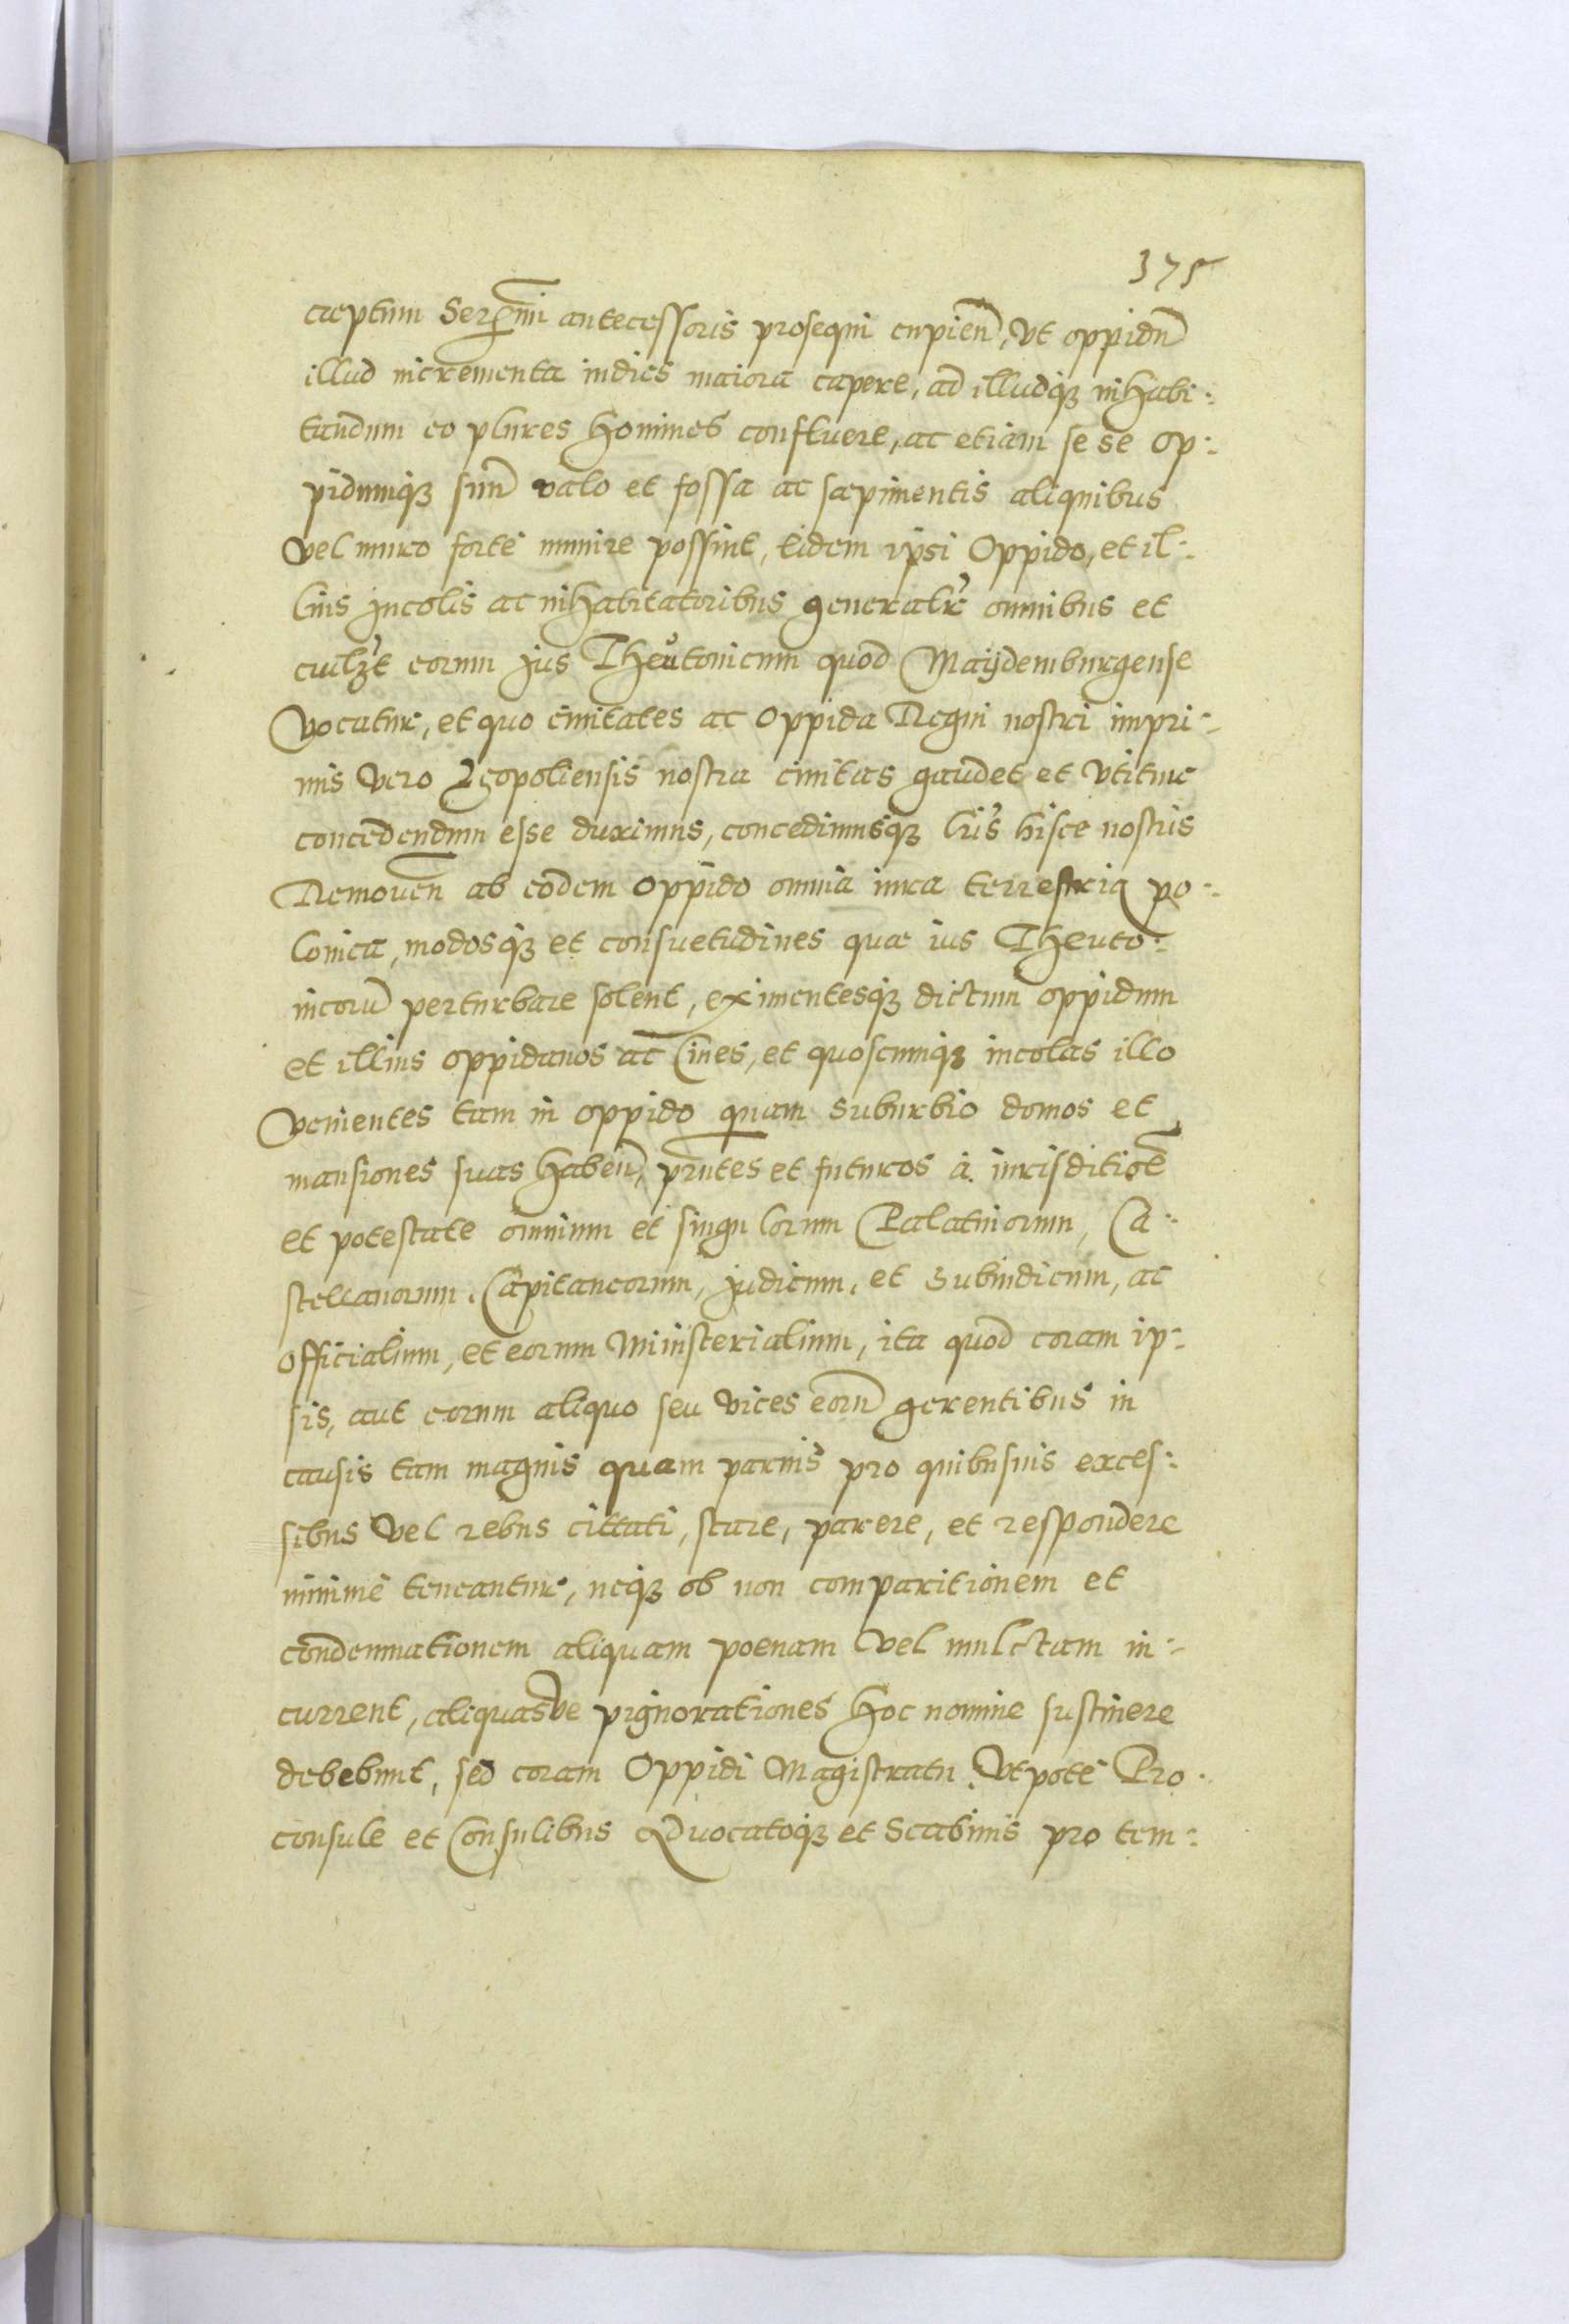 375
caeptum Serᵐⁱ antecessoris prosequi cupien̄, vt oppidū
illud incrementa indies maiora capere, ad illudq₃ inhabi-:
tandum eo plures homines confluere, ac etiam se se op-:
pidumq₃ suū valo et fossa ac sæpimentis aliquibus
vel muro forte munire possint, Eidem ipsi Oppido, et il-:
lius Incolis ac inhabitatoribus generalr̄ omnibus et
cuilꝫt eorum Jus Theutonicum quod Maÿdemburgense
Vocatur, et quo ciuitates ac Oppida Regni nostri impri-:
mis vero Leopoliensis nostra ciuitas gaudet et vtitur
concedendum esse duximus, concedimusq₃ lr̄is hisce nostris
Remouen̄ ab eodem Oppido omnia iura terrestria po-:
lonica, modosq₃ et consuetudines quæ ius Theuto-:
nicorū perturbare solent, eximentesq₃ dictum oppidum
et illius oppidanos ac Ciues, et quoscumq₃ incolas illo
Venientes tam in oppido quam suburbio domos et
mansiones suas haben̄, pr̄ntes et futuros à iurisditiōe
et potestate omnium et singulorum Palatinorum, Ca-:
stellanorum, Capitaneorum, Judicum, et Subiudicum, ac
officialium, et eorum Ministerialium, ita quod coram ip-:
sis, aut eorum aliquo seu vices eorū gerentibus in
causis tam magnis quam paruis pro quibusuis exces-:
sibus vel rebus cittati, stare, parere, et respondere
minime teneantur, neq₃ ob non comparitionem et
condemnationem aliquam poenam vel mulctam in-:
current, aliquasve pignorationes hoc nomine sustinere
debebunt, sed coram Oppidi Magistratu. Vtpote Pro-
consule et Consulibus Advocatoq₃ et Scabinis pro tem-: